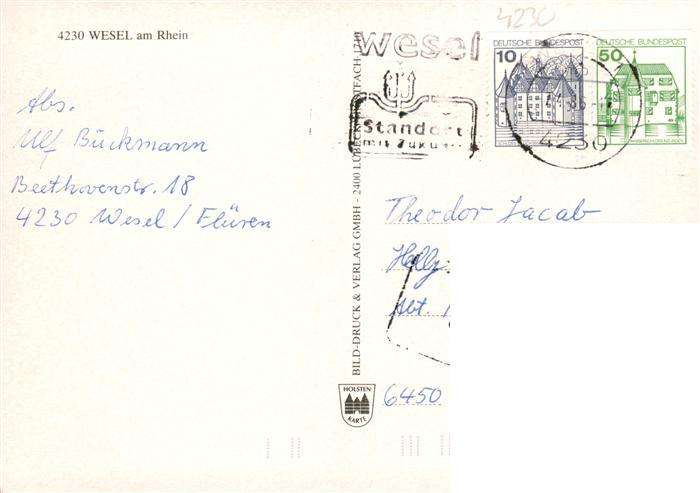 4230
4230 WESEL am Rhein
wesel
Standort
mit Zukunft
DEUTSCHE BUNDESPOST
10
DEUTSCHE BUNDESPOST
50
4230
Abs.
Ulf Bückmann
Beethovenstr. 18
4230 Wesel / Flüren
BILD-DRUCK & VERLAG GMBH - 2400 LÜBECK
Theodor Jacab
Abt.
6450
HOLSTEN
KARTE